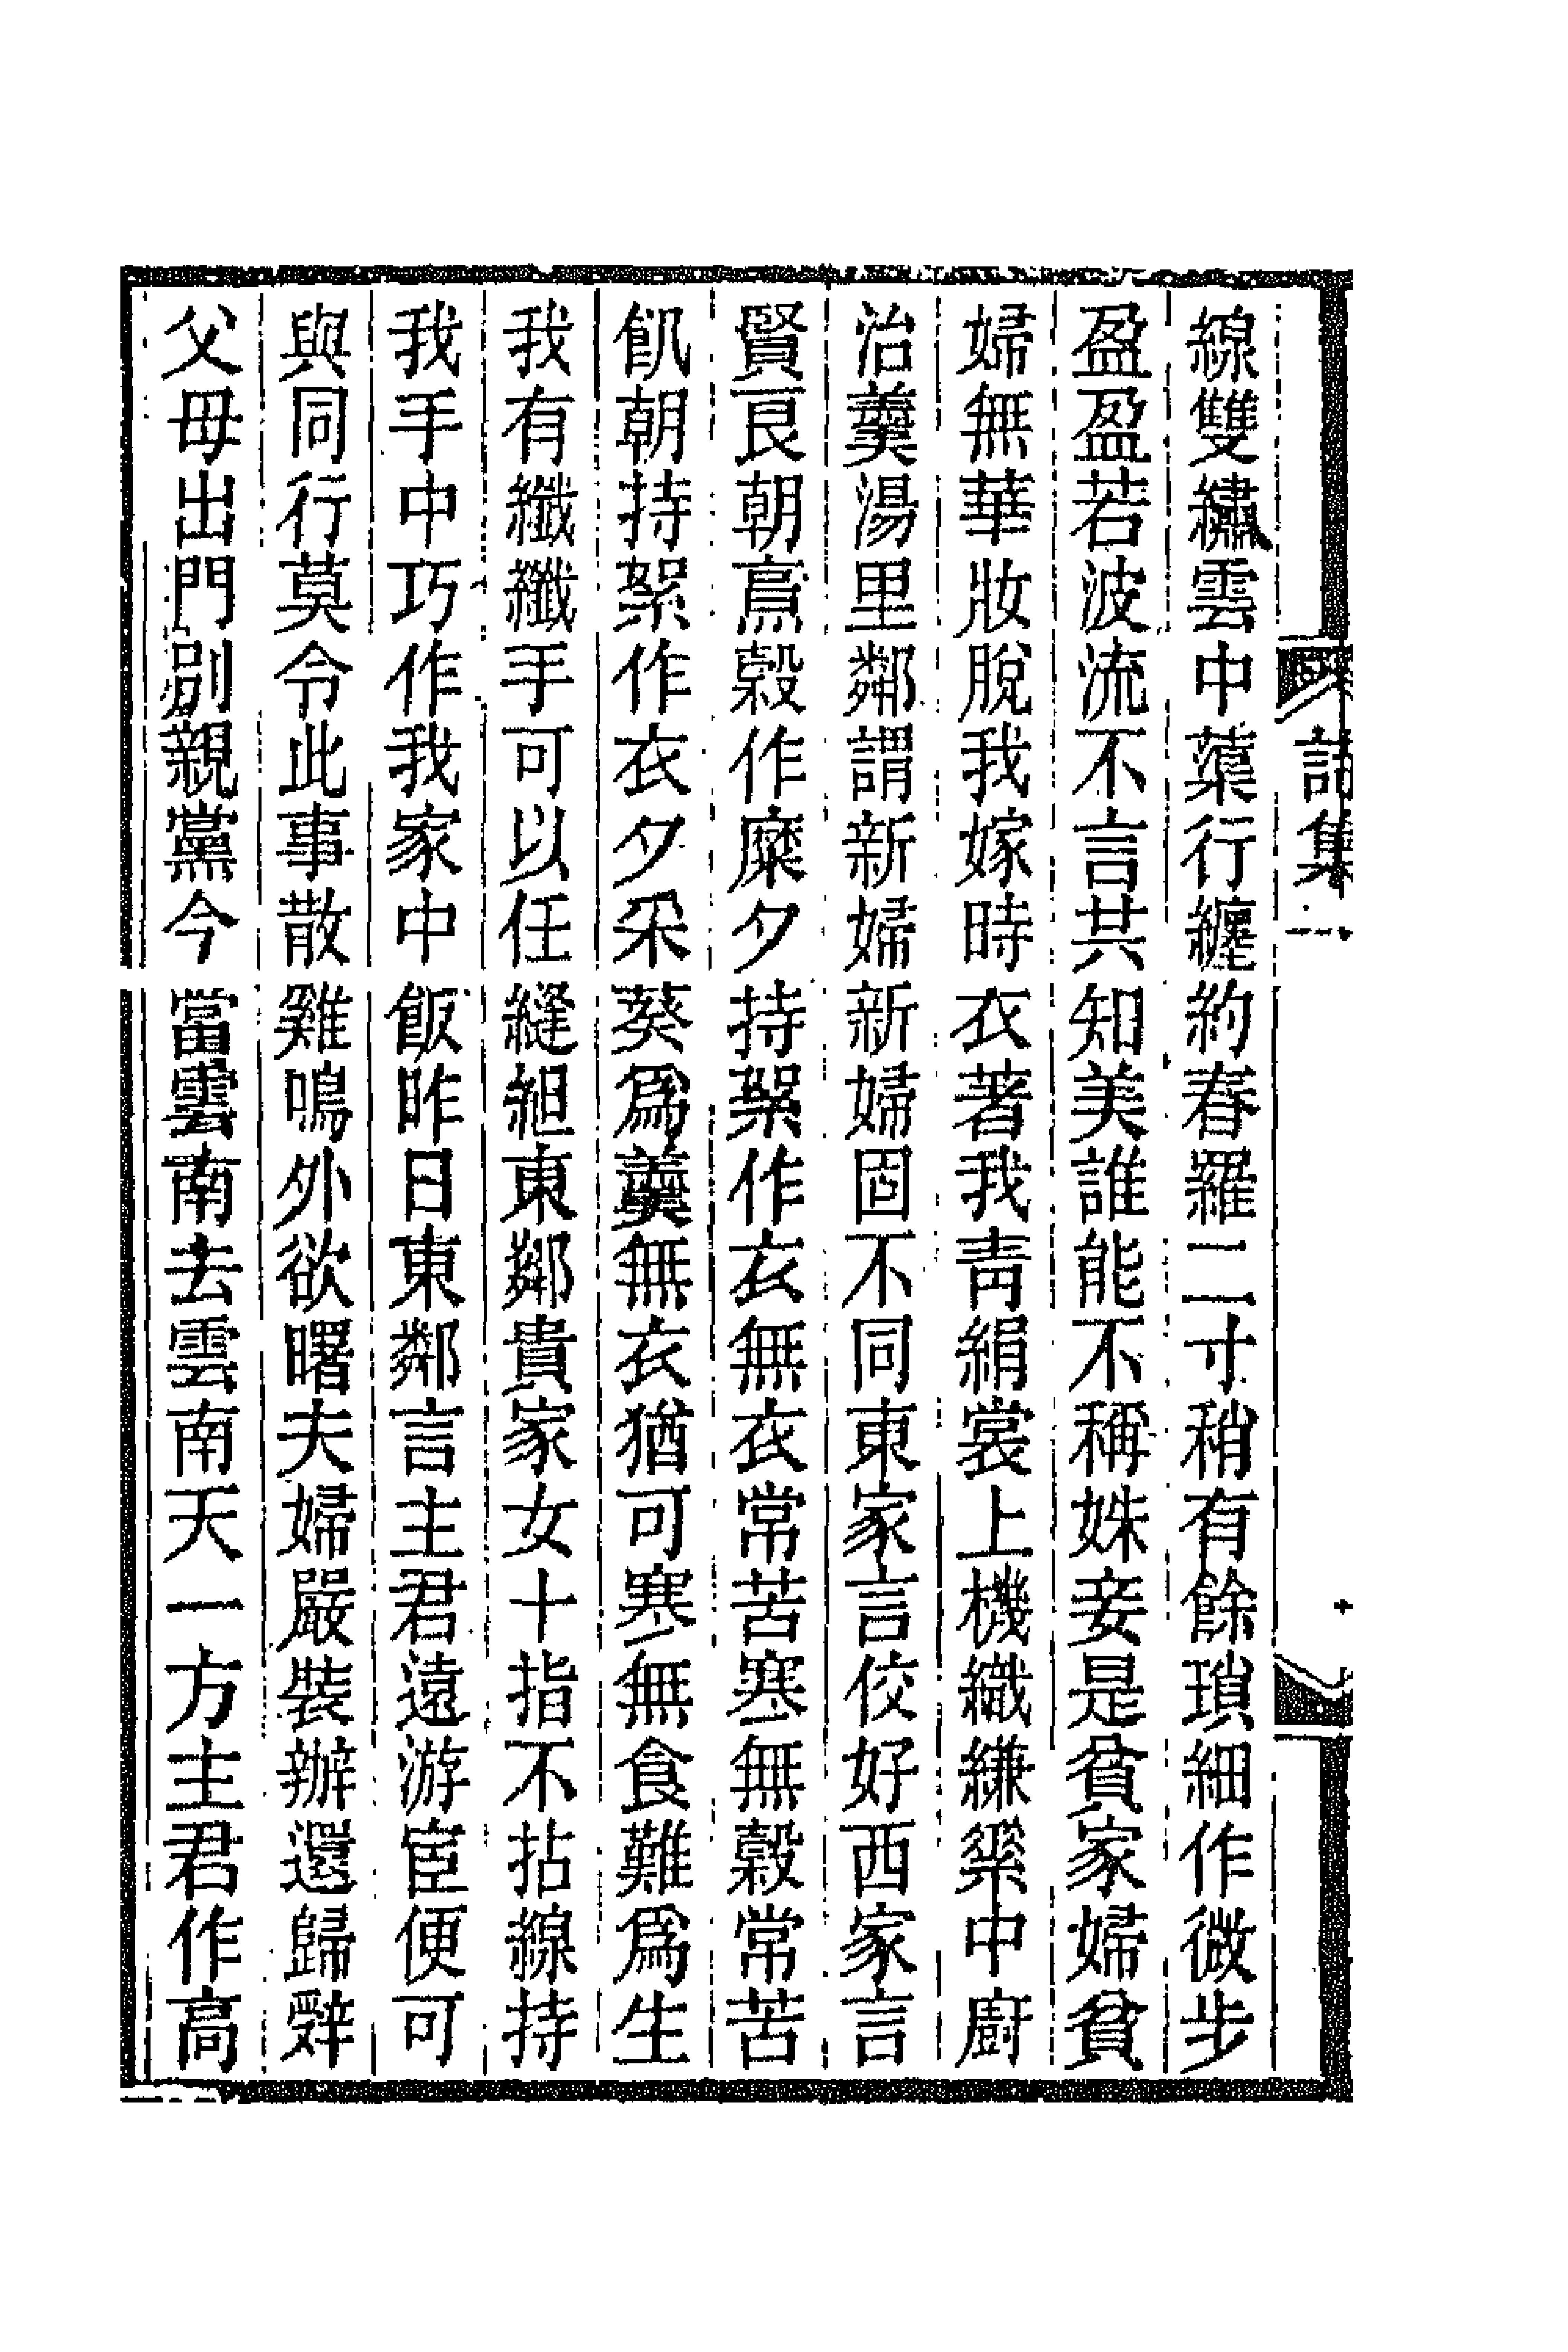 詩集一
線雙繡雲中蘂行纏約春羅二寸稍有餘瑣細作微步
盈盈若波流不言共知美誰能不稱姝妾是貧家婦貧
婦無華妝脫我嫁時衣著我靑絹裳上機織縑纅中廚
治羹湯里鄰謂新婦新婦固不同東家言佼好西家言
賢良朝爲穀作糜夕持絮作衣無衣常苦寒無穀常苦
飢朝持絮作衣夕采葵爲羹無衣猶可寒無食難爲生
我有纖纖手可以任縫組東鄰貴家女十指不拈線持
我手中巧作我家中飯昨日東鄰言主君遠游宦便可
與同行莫令此事散雞鳴外欲曙夫婦嚴裝辦還歸辤
父母出門別親黨今當雲南去雲南天一方主君作高